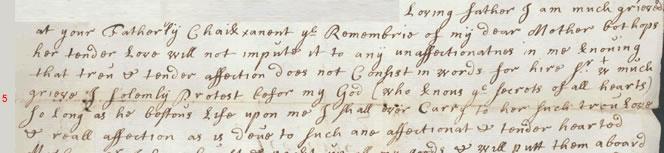 Loving father I am much grieved
at your Fatherly ye Remembrie of my dear Mother bot hops
her tender Love will not impute it to any unaffectionatnes in me knouing
that treu & tender affection does not Consist in words for hire Sr. wt much
grieve I Solemly Protest befor my God (who knous ye secrets of all hearts)
5
So long as he bestous Life upon me I shall ever Carry to her such treu Love
& reall affection as is deue to such ane affectionat & tender hearted
my goods & will putt them aboard